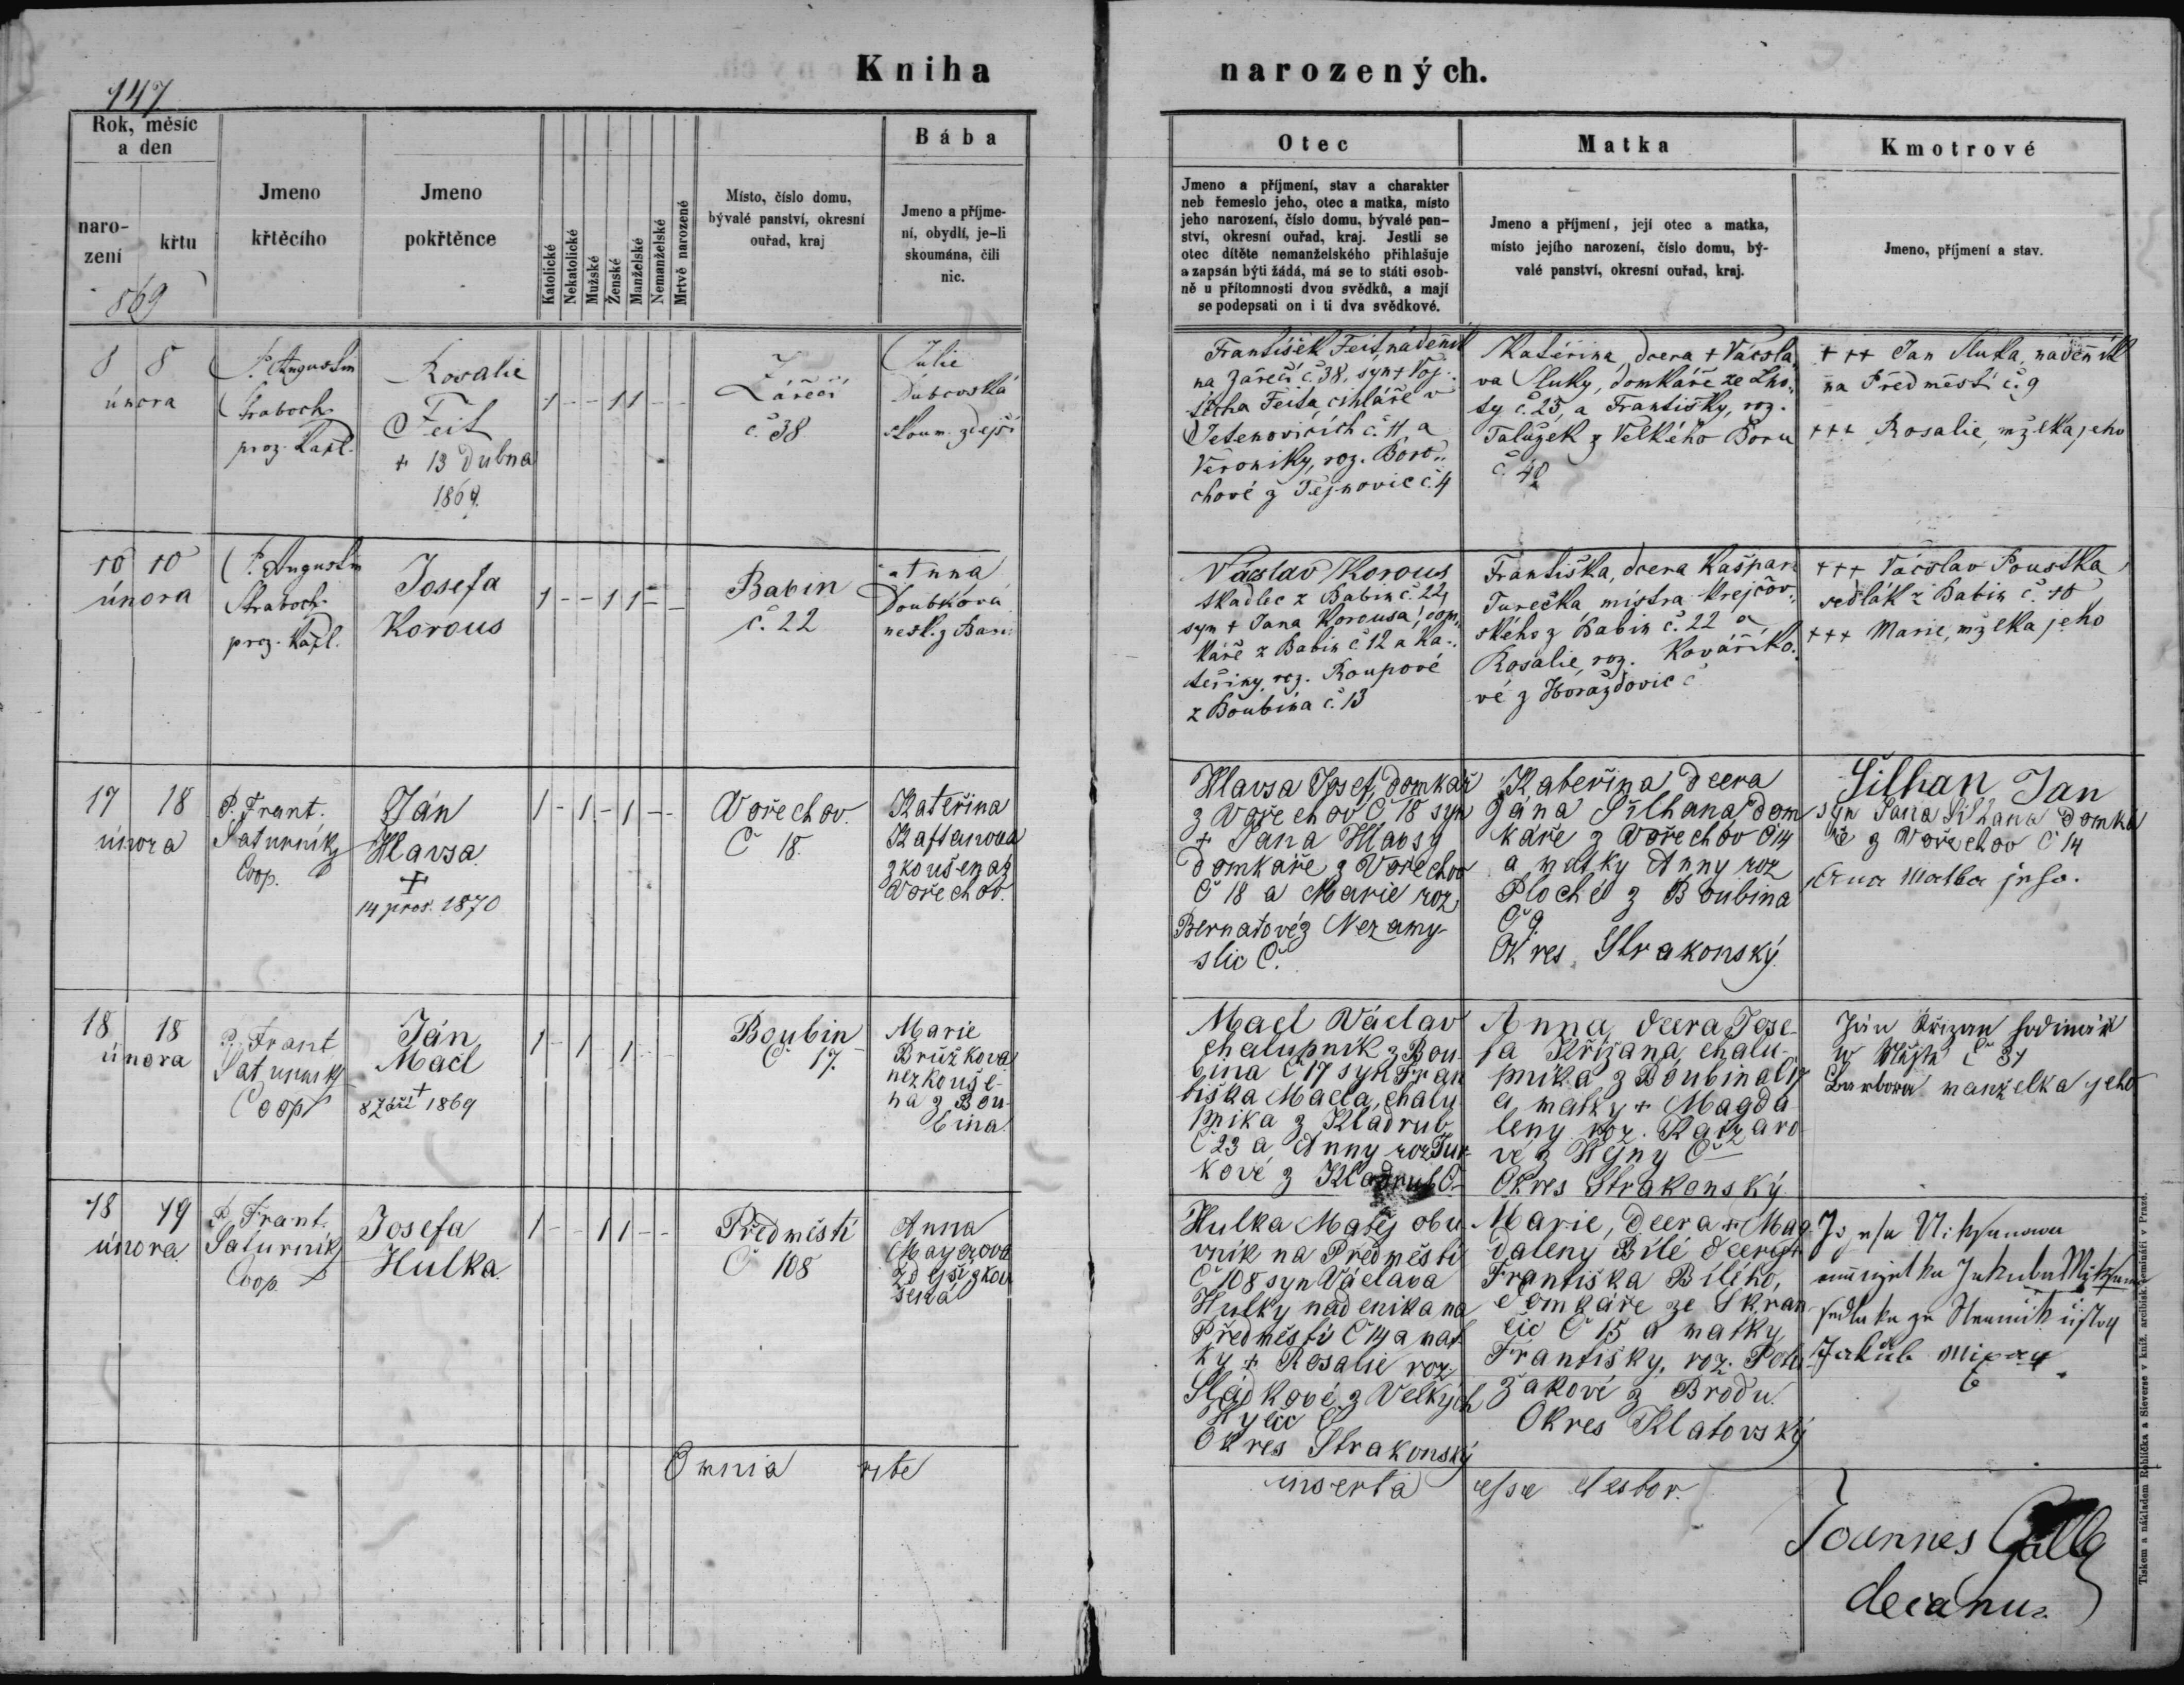 147
Kniha narozených.
Rok, měsíc
a den
naro-
zení
křtu
869
Jmeno
křtěcího
Jmeno
pokřtěnce
Katolické
Nekatolické
Mužské
Ženské
Manželské
Nemanželské
Mrtvě narozené
Místo, číslo domu,
bývalé panství, okresní
ouřad, kraj
Bába
Jmeno a příjme-
ní, obydlí, je-li
skoumána, čili
nic.
Otec
Jmeno a příjmení, stav a charakter
neb řemeslo jeho, otec a matka, místo
jeho narození, číslo domu, bývalé pan-
ství, okresní ouřad, kraj. Jestli se
otec dítěte nemanželského přihlašuje
a zapsán býti žádá, má se to státi osob-
ně u přítomnosti dvou svědků, a mají
se podepsati on i ti dva svědkové.
Matka
Jmeno a příjmení, její otec a matka,
místo jejího narození, číslo domu, bý-
valé panství, okresní ouřad, kraj.
Kmotrové
Jmeno, příjmení a stav.
8 8
února
P. Augustin
Straboch
proz. Kapl.
Rosalie
Feit
+ 13 Dubna
1869.
1 - - 1 1 - -
Zářečí
č. 38
Julie
Dubcovská
skoum. zdejší
František Feit, nádenník
na Zářečí č. 38, syn + Voj-
těcha Feita, cihláře v
Jetenovicích č. 11 a
Veroniky, roz. Boro-
chové z Tejnovic č. 4
Kateřina, dcera + Václa-
va Sluky, domkáře ze Lho-
ty č. 25, a Františky, roz.
Talůžek z Velkého Boru
č. 40
+++ Jan Sluka, nádenník
na Předměstí č. 9
+++ Rosalie, mželka jeho
10 10
února
P. Augustin
Straboch
proz. Kapl.
Josefa
Korous
1 - - 1 1 - -
Babin
č. 22
Anna
Doubková
nesk. z Babin
Václav Korous
tkadlec z Babin č. 22,
syn + Jana Korousa, dom-
káře z Babin č. 12 a Ka-
teřiny, roz. Roupové
z Boubína č. 13
Františka, dcera Kašpara
Turečka, mistra krejčov-
ského z Babin č. 22 a
Rosalie, roz. Kovaříko-
vé z Horažďovic č
+++ Václav Poustka
sedlák z Babin č. 10
+++ Marie, mželka jeho
17 18
února
P. Frant.
Saturník
Coop.
Ján
Hlavsa.
+
14 pros. 1870
1 - 1 - 1 - -
Vořechov.
Č 18.
Kateřina
Kaftanova
zkoušená z
Vořechov.
Hlavsa Josef, domkář
z Vořechov Č 18 syn
+ Jana Hlavsy
domkáře z Vořechov
Č 18 a Marie roz
Bernatové z Nezamy-
slic Č.
Kateřina dcera
Jána Šilhana dom
káře z Vořechov Č 14
a matky Anny roz
Ploché z Boubína
Č 9.
Okres Strakonský.
Šilhan Jan
syn Jana Šilhana domká
ře z Vořechov Č 14
Ana Matka jeho.
18 18
února
P. Frant
Saturník
Coop
Ján
Macl
+
8 Září 1869
1 - 1 - 1 - -
Boubin
Č 17.
Marie
Brůžková
nezkouše-
ná z Bou-
bína.
Macl Václav
chalupník z Bou-
bína Č 17 syn Fran
tiška Macla, chalu
pníka z Kladrub
Č 23 a Anny roz Tur-
kové z Kladrub Č -
Anna, dcera Jose-
fa Křižana, chalu-
pníka z Boubína Č 17
a matky + Magda
leny roz.
vé z Kejny Č -
Okres Strakonský.
Ján Křizan hodinář
Č 31
Barbora manželka jeho
18 19
února
P. Frant.
Saturník
Coop.
Josefa
Hulka.
1 - - 1 1 - -
Předměstí
Č 108
Anna
Mayerová
zdejší zkou
šená
Hulka Matěj obu
vník na Předměstí
Č 108 syn Václava
Hulky nádenika na
Předměstí Č 14 a mat
ky + Rosalie roz
Sládkové z Velkých
Hydčic Č
Okres Strakonský
Marie, dcera + Mag
daleny Bílé dcery +
Františka Bílého,
domkáře ze Skran
čic Č 15 a matky
Františky, roz.
žákové z Brodu.
Okres Klatovský
Jakub
Omnia rite
inserta esse testor.
Joannes Galle
decanus.
Tiskem a nákladem Rohlíčka a Sieverse v kníž. arcibisk. semináři v Praze.